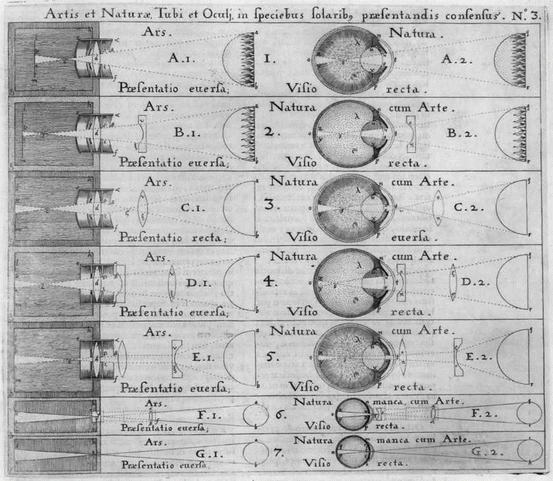 Artis et Naturæ, Tubi et Oculj, in speciebus solarib9 præsentandis consensus. No. 3.
Ars. Natura.
A.1. 1. A.2.
Præsentatio euersa; Visio recta.
Ars. Natura cum Arte.
B.1. 2. B.2.
Præsentatio euersa; Visio recta.
Ars. Natura cum Arte.
C.1. 3. C.2.
Præsentatio recta; Visio euersa.
Ars. Natura cum Arte.
D.1. 4. D.2.
Præsentatio euersa; Visio recta.
Ars. Natura cum Arte.
E.1. 5. E.2.
Præsentatio euersa; Visio recta.
Ars. Natura manca cum Arte.
F.1. 6. F.2.
Præsentatio euersa; Visio recta.
Ars. Natura manca cum Arte.
G.1. 7. G.2.
Præsentatio euersa. Visio recta.